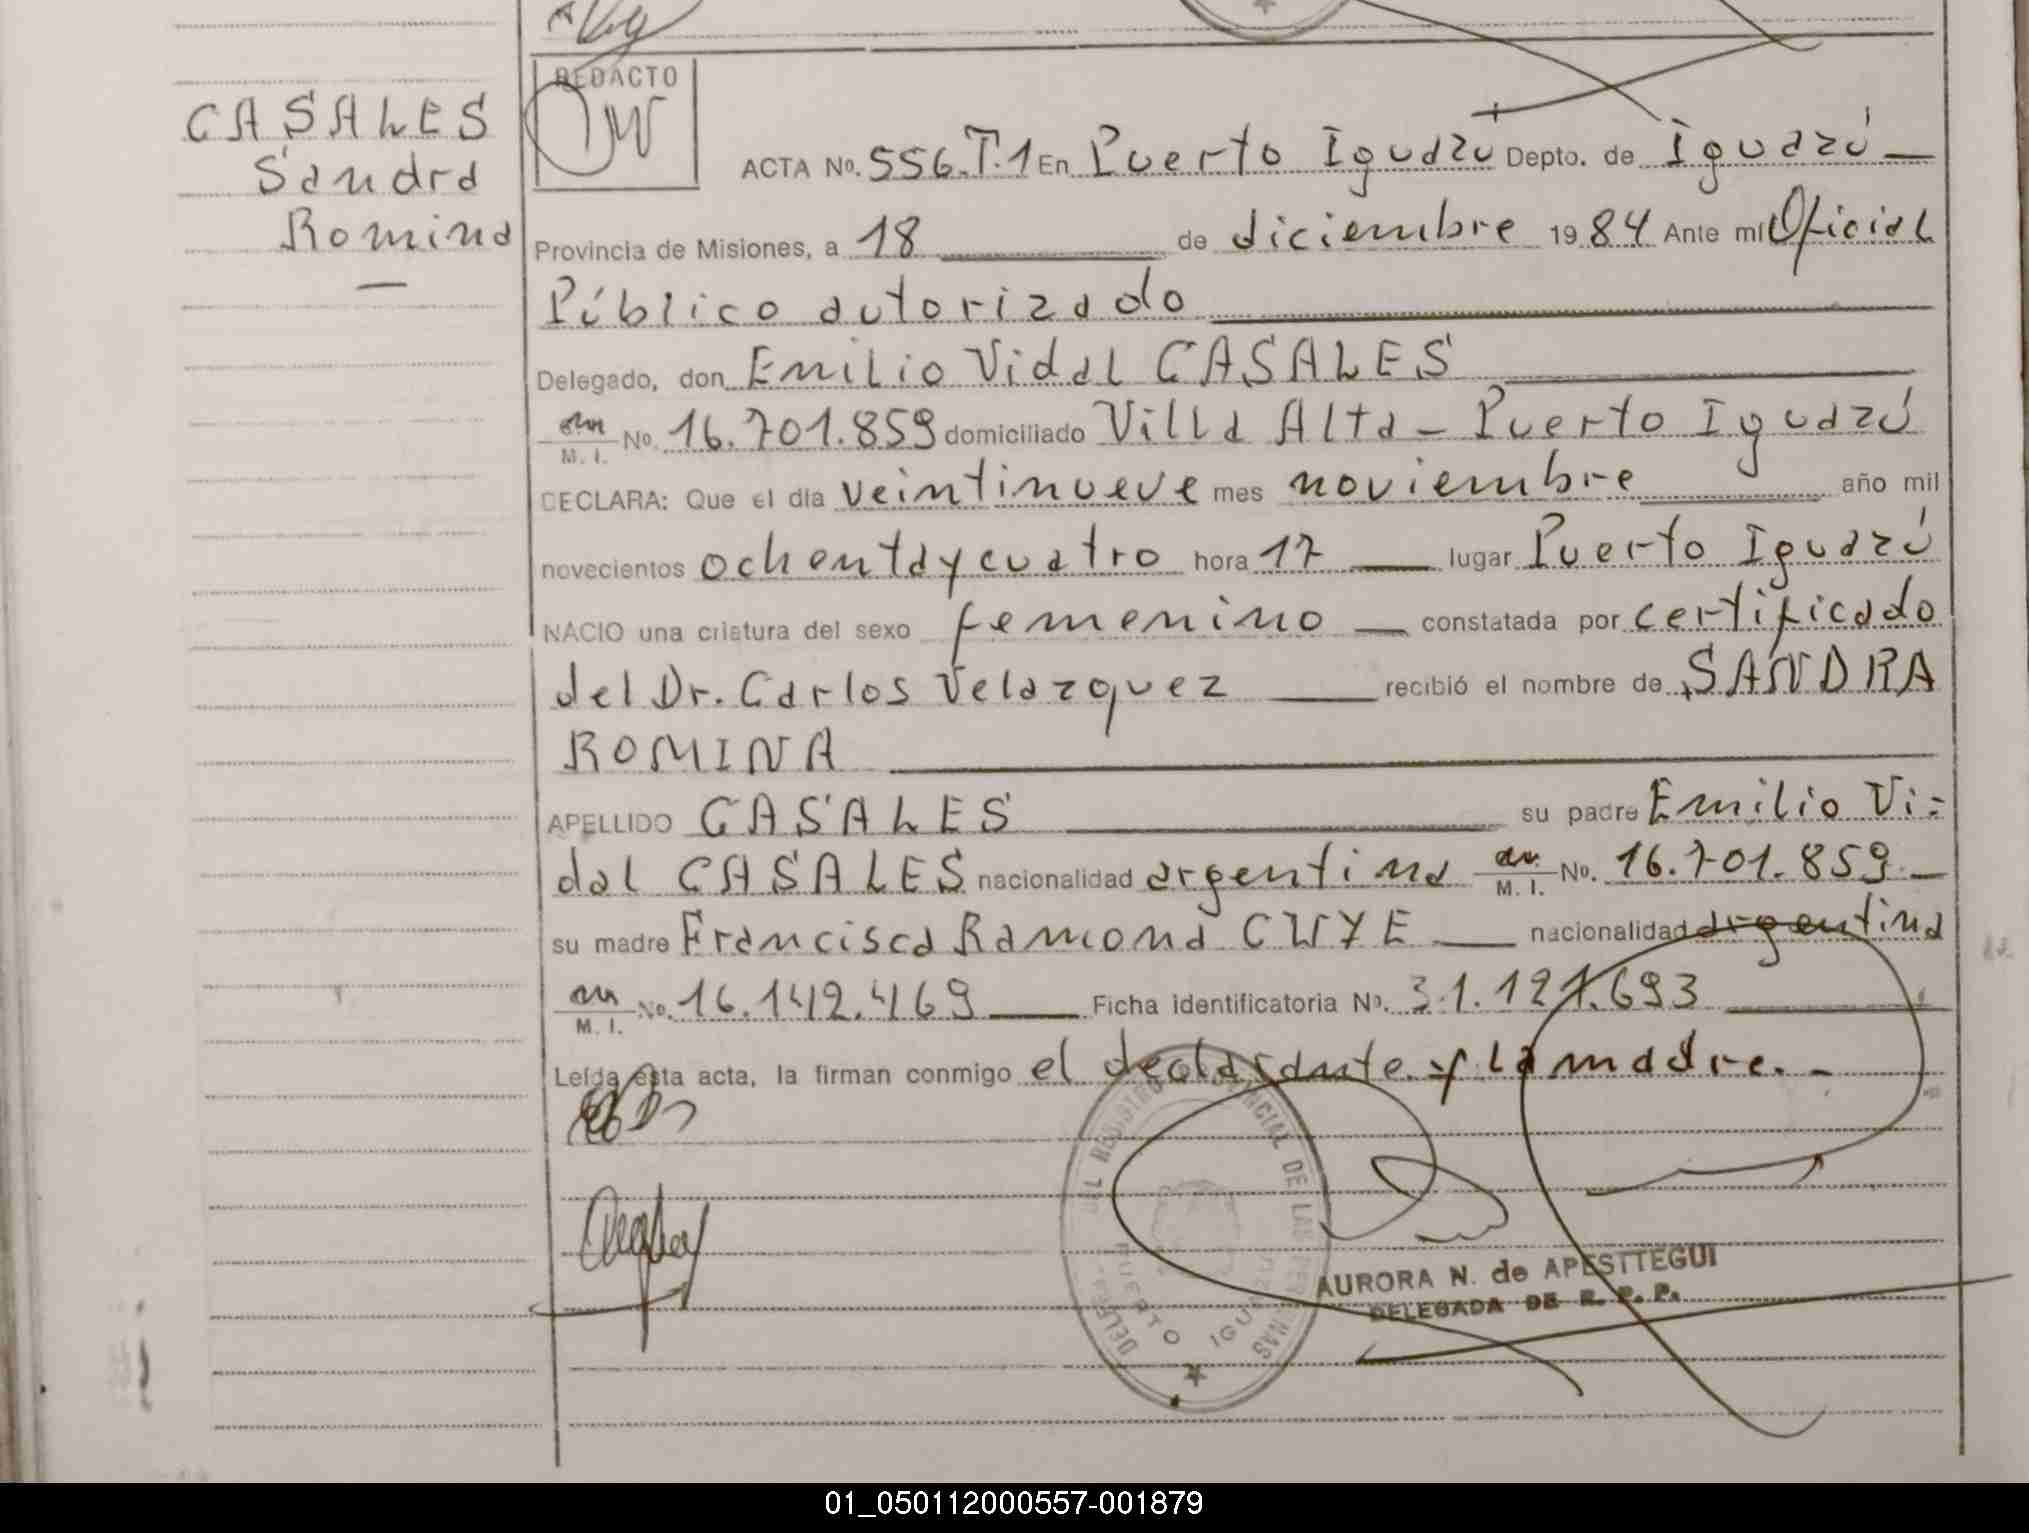 CASALES
Sandra
Romina
—
REDACTO
ACTA No. 556.T.1 En Puerto Iguazú Depto. de Iguazú —
Provincia de Misiones, a 18 ____ de diciembre 1984 Ante mí Oficial
Público autorizado
Delegado, don Emilio Vidal CASALES
M. I. No. 16.701.859 domiciliado Villa Alta - Puerto Iguazú
DECLARA: Que el día veintinueve mes noviembre año mil
novecientos ochentaycuatro hora 17 — lugar Puerto Iguazú
NACIO una criatura del sexo femenino — constatada por certificado
del Dr. Carlos Velazquez — recibió el nombre de SANDRA
ROMINA
APELLIDO CASALES su padre Emilio Vi=
dal CASALES nacionalidad argentina M. I. No. 16.701.859 —
su madre Francisca Ramona CWYE — nacionalidad argentina
M. I. No. 16.142.469 — Ficha identificatoria No. 31.121.693
Leída esta acta, la firman conmigo el declarante y la madre. -
DEL REGISTRO PROVINCIAL DE LAS PERSONAS
PUERTO IGUAZU
AURORA N. de APESTTEGUI
DELEGADA DE R. P. P.
01_050112000557-001879